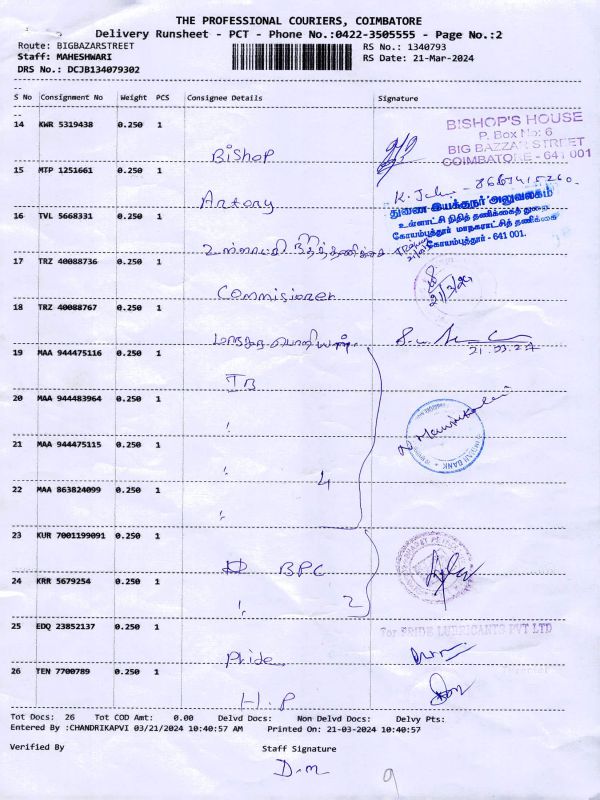 THE PROFESSIONAL COURIERS, COIMBATORE
Delivery Runsheet - PCT - Phone No.:0422-3505555 - Page No.:2
Route: BIGBAZARSTREET RS No.: 1340793
Staff: MAHESHWARI RS Date: 21-Mar-2024
DRS No.: DCJB134079302
S No Consignment No Weight PCS Consignee Details Signature
14 KWR 5319438 0.250 1
BISHOP'S HOUSE
P. Box No: 6
BIG BAZZAR STREET
COIMBATORE - 641 001
Bishop
15 MTP 1251661 0.250 1
Antony
துணை இயக்குநர் அலுவலகம்
உள்ளாட்சி நிதித் தணிக்கைத் துறை
கோயம்புத்தூர் மாநகராட்சித் தணிக்கை
கோயம்புத்தூர் - 641 001.
16 TVL 5668331 0.250 1
உள்ளாட்சி நிதித்தணிக்கை
17 TRZ 40088736 0.250 1
21/3/24
Commisioner
18 TRZ 40088767 0.250 1
மாநகர பொறியாளர்
21.03.24
19 MAA 944475116 0.250 1
IB
20 MAA 944483964 0.250 1
INDIAN BANK
21 MAA 944475115 0.250 1
4
22 MAA 863824099 0.250 1
23 KUR 7001199091 0.250 1
BPC
24 KRR 5679254 0.250 1
2
25 EDQ 23852137 0.250 1
For PRIDE LUBRICANTS PVT LTD
Pride
26 TEN 7700789 0.250 1
H.P
Tot Docs: 26 Tot COD Amt: 0.00 Delvd Docs: Non Delvd Docs: Delvy Pts:
Entered By :CHANDRIKAPVI 03/21/2024 10:40:57 AM Printed On: 21-03-2024 10:40:57
Verified By Staff Signature
D.m
9